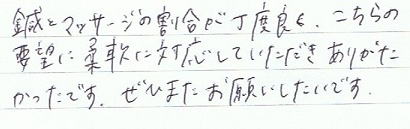 鍼とマッサージの割合が丁度良く、こちらの
要望に柔軟に対応していただきありがた
かったです。ぜひまたお願いしたいです。